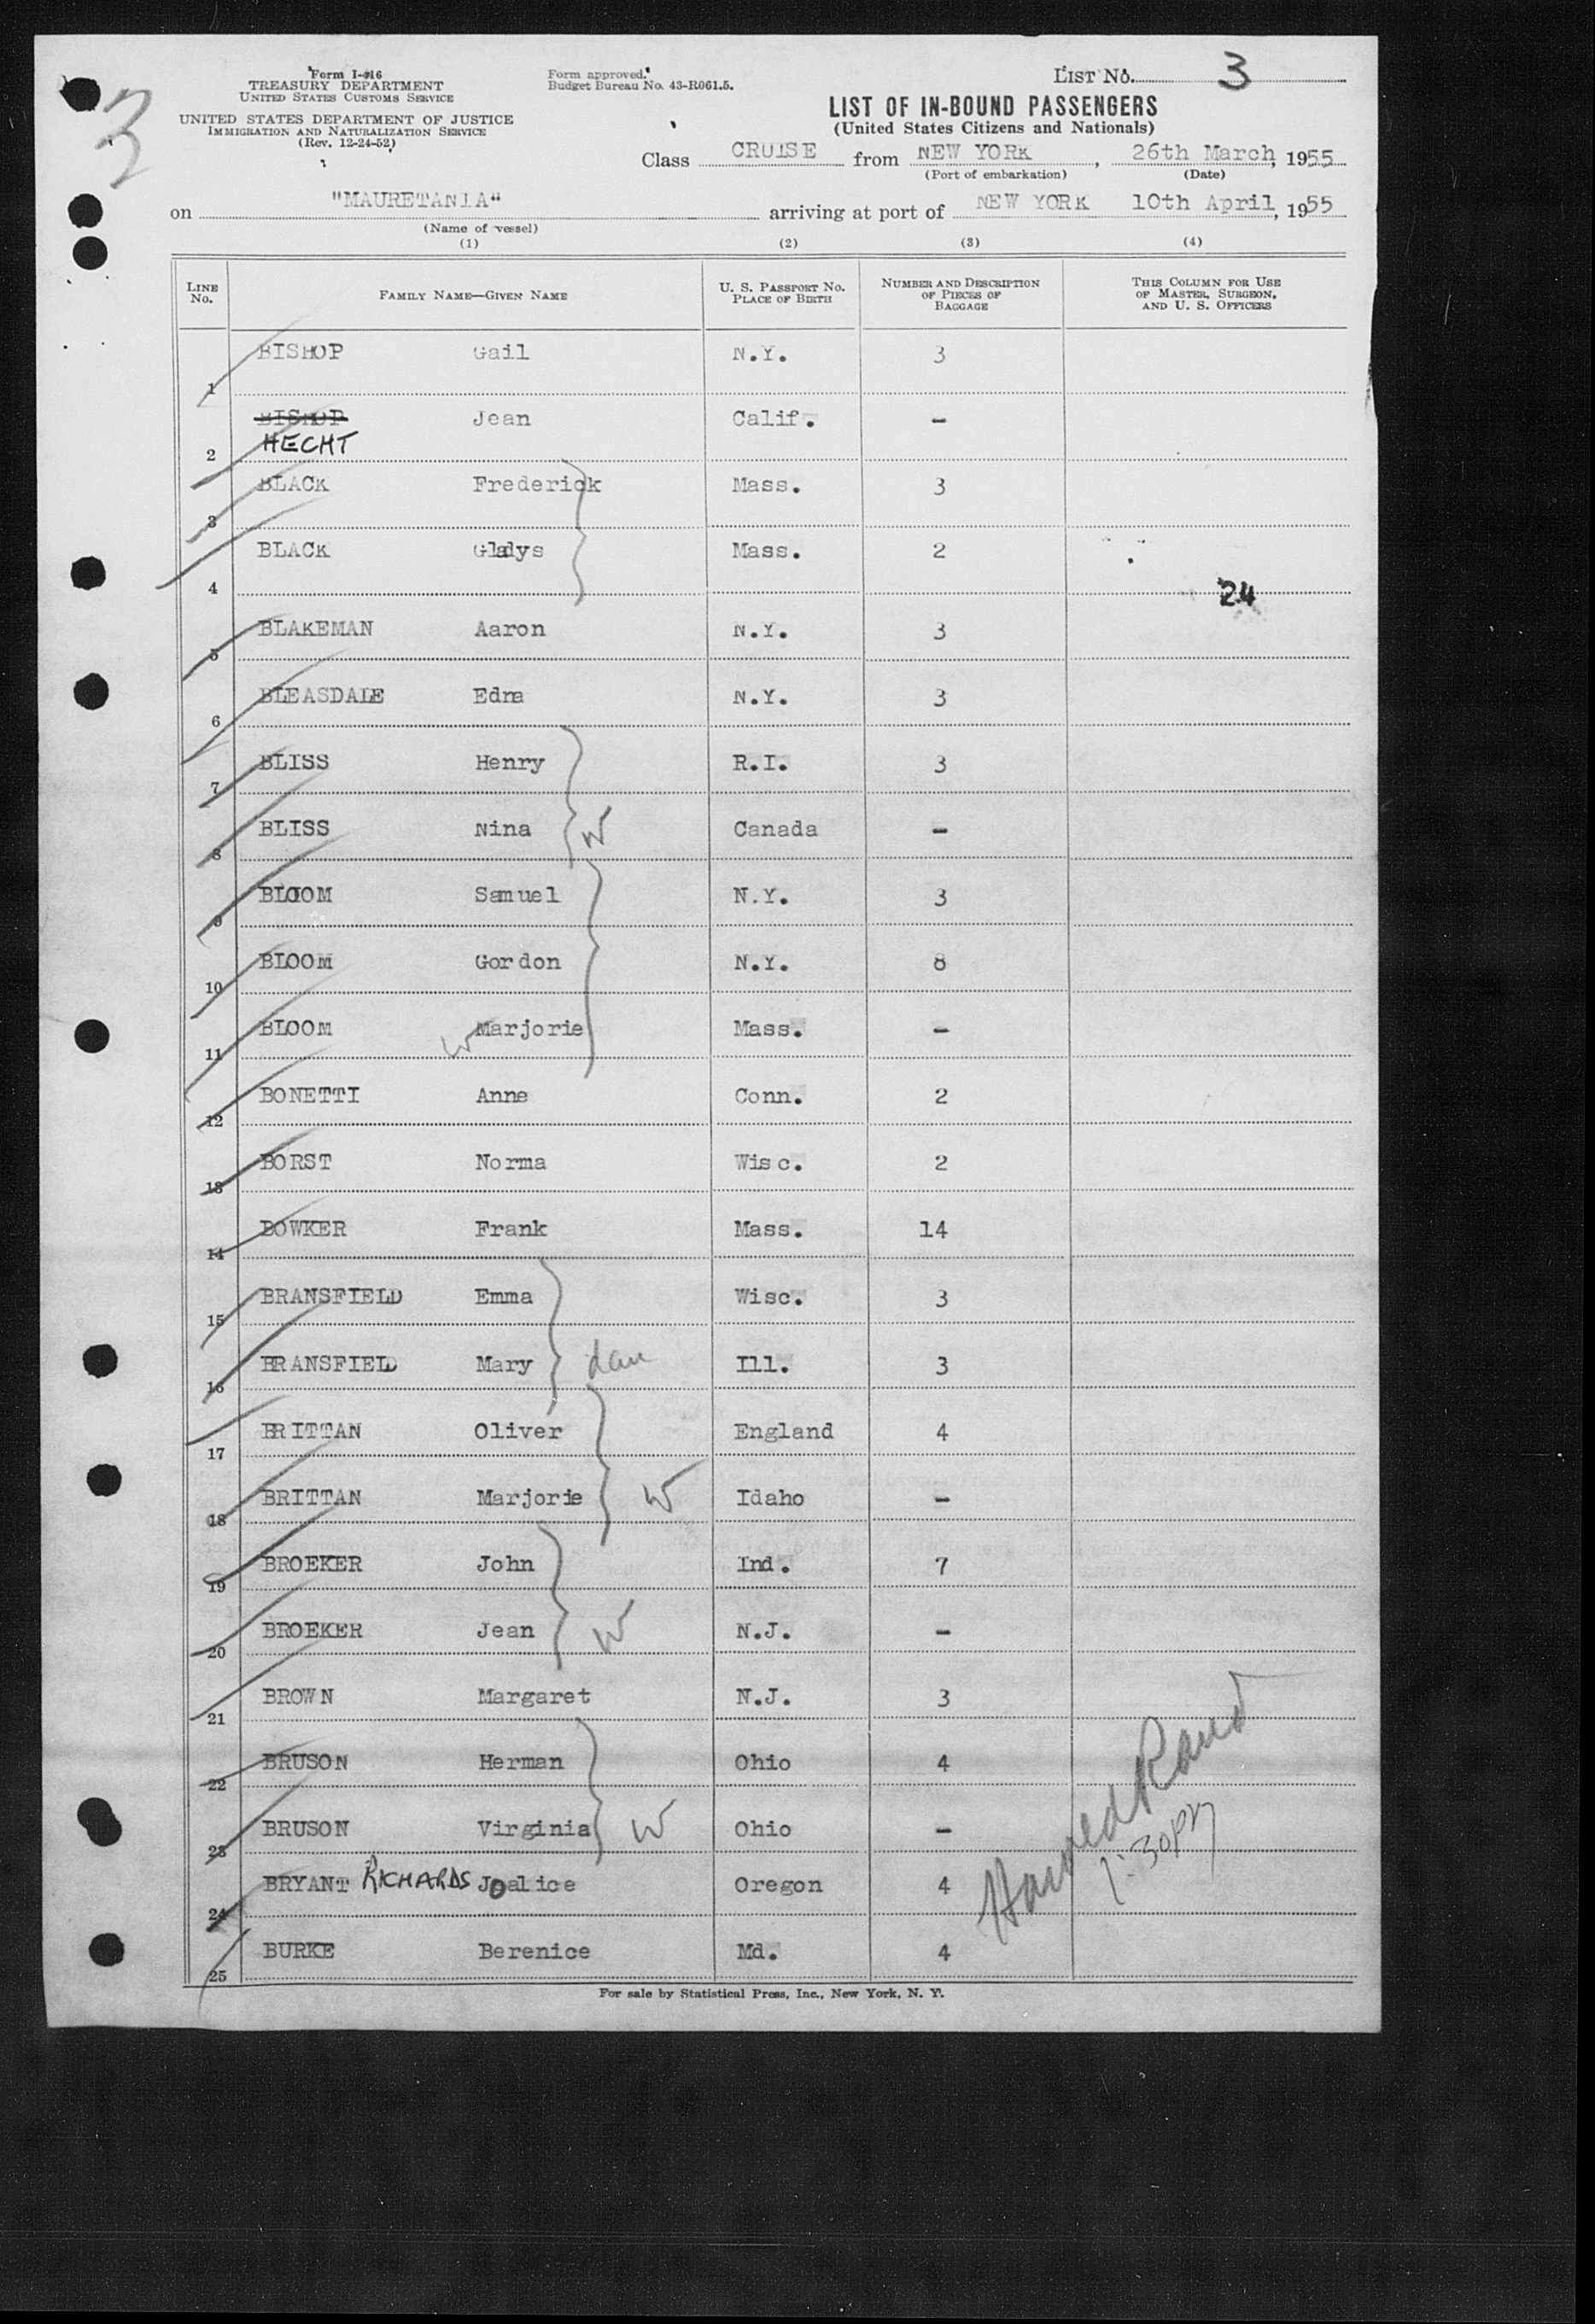 3
Form I-416
TREASURY DEPARTMENT
UNITED STATES CUSTOMS SERVICE
UNITED STATES DEPARTMENT OF JUSTICE
IMMIGRATION AND NATURALIZATION SERVICE
(Rev. 12-24-52)
Form approved.
Budget Bureau No. 43-R061.5.
LIST No. 3
LIST OF IN-BOUND PASSENGERS
(United States Citizens and Nationals)
Class CRUISE from NEW YORK, 26th March, 1955
(Port of embarkation) (Date)
on "MAURETANIA" arriving at port of NEW YORK 10th April, 1955
(Name of vessel)
(1) (2) (3) (4)
LINE No. FAMILY NAME—GIVEN NAME U. S. PASSPORT No. PLACE OF BIRTH NUMBER AND DESCRIPTION OF PIECES OF BAGGAGE THIS COLUMN FOR USE OF MASTER, SURGEON, AND U. S. OFFICERS
1 BISHOP Gail N.Y. 3
2 BISHOP HECHT Jean Calif. -
3 BLACK Frederick Mass. 3
4 BLACK Gladys Mass. 2
24
5 BLAKEMAN Aaron N.Y. 3
6 BLEASDALE Edna N.Y. 3
7 BLISS Henry R.I. 3
8 BLISS Nina W Canada -
9 BLOOM Samuel N.Y. 3
10 BLOOM Gordon N.Y. 8
11 BLOOM W Marjorie Mass. -
12 BONETTI Anne Conn. 2
13 BORST Norma Wisc. 2
14 BOWKER Frank Mass. 14
15 BRANSFIELD Emma Wisc. 3
16 BRANSFIELD Mary dau Ill. 3
17 BRITTAN Oliver England 4
18 BRITTAN Marjorie W Idaho -
19 BROEKER John Ind. 7
20 BROEKER Jean W N.J. -
21 BROWN Margaret N.J. 3
22 BRUSON Herman Ohio 4
23 BRUSON Virginia W Ohio -
24 BRYANT RICHARDS Joalice Oregon 4
25 BURKE Berenice Md. 4
1:30PM
For sale by Statistical Press, Inc., New York, N. Y.